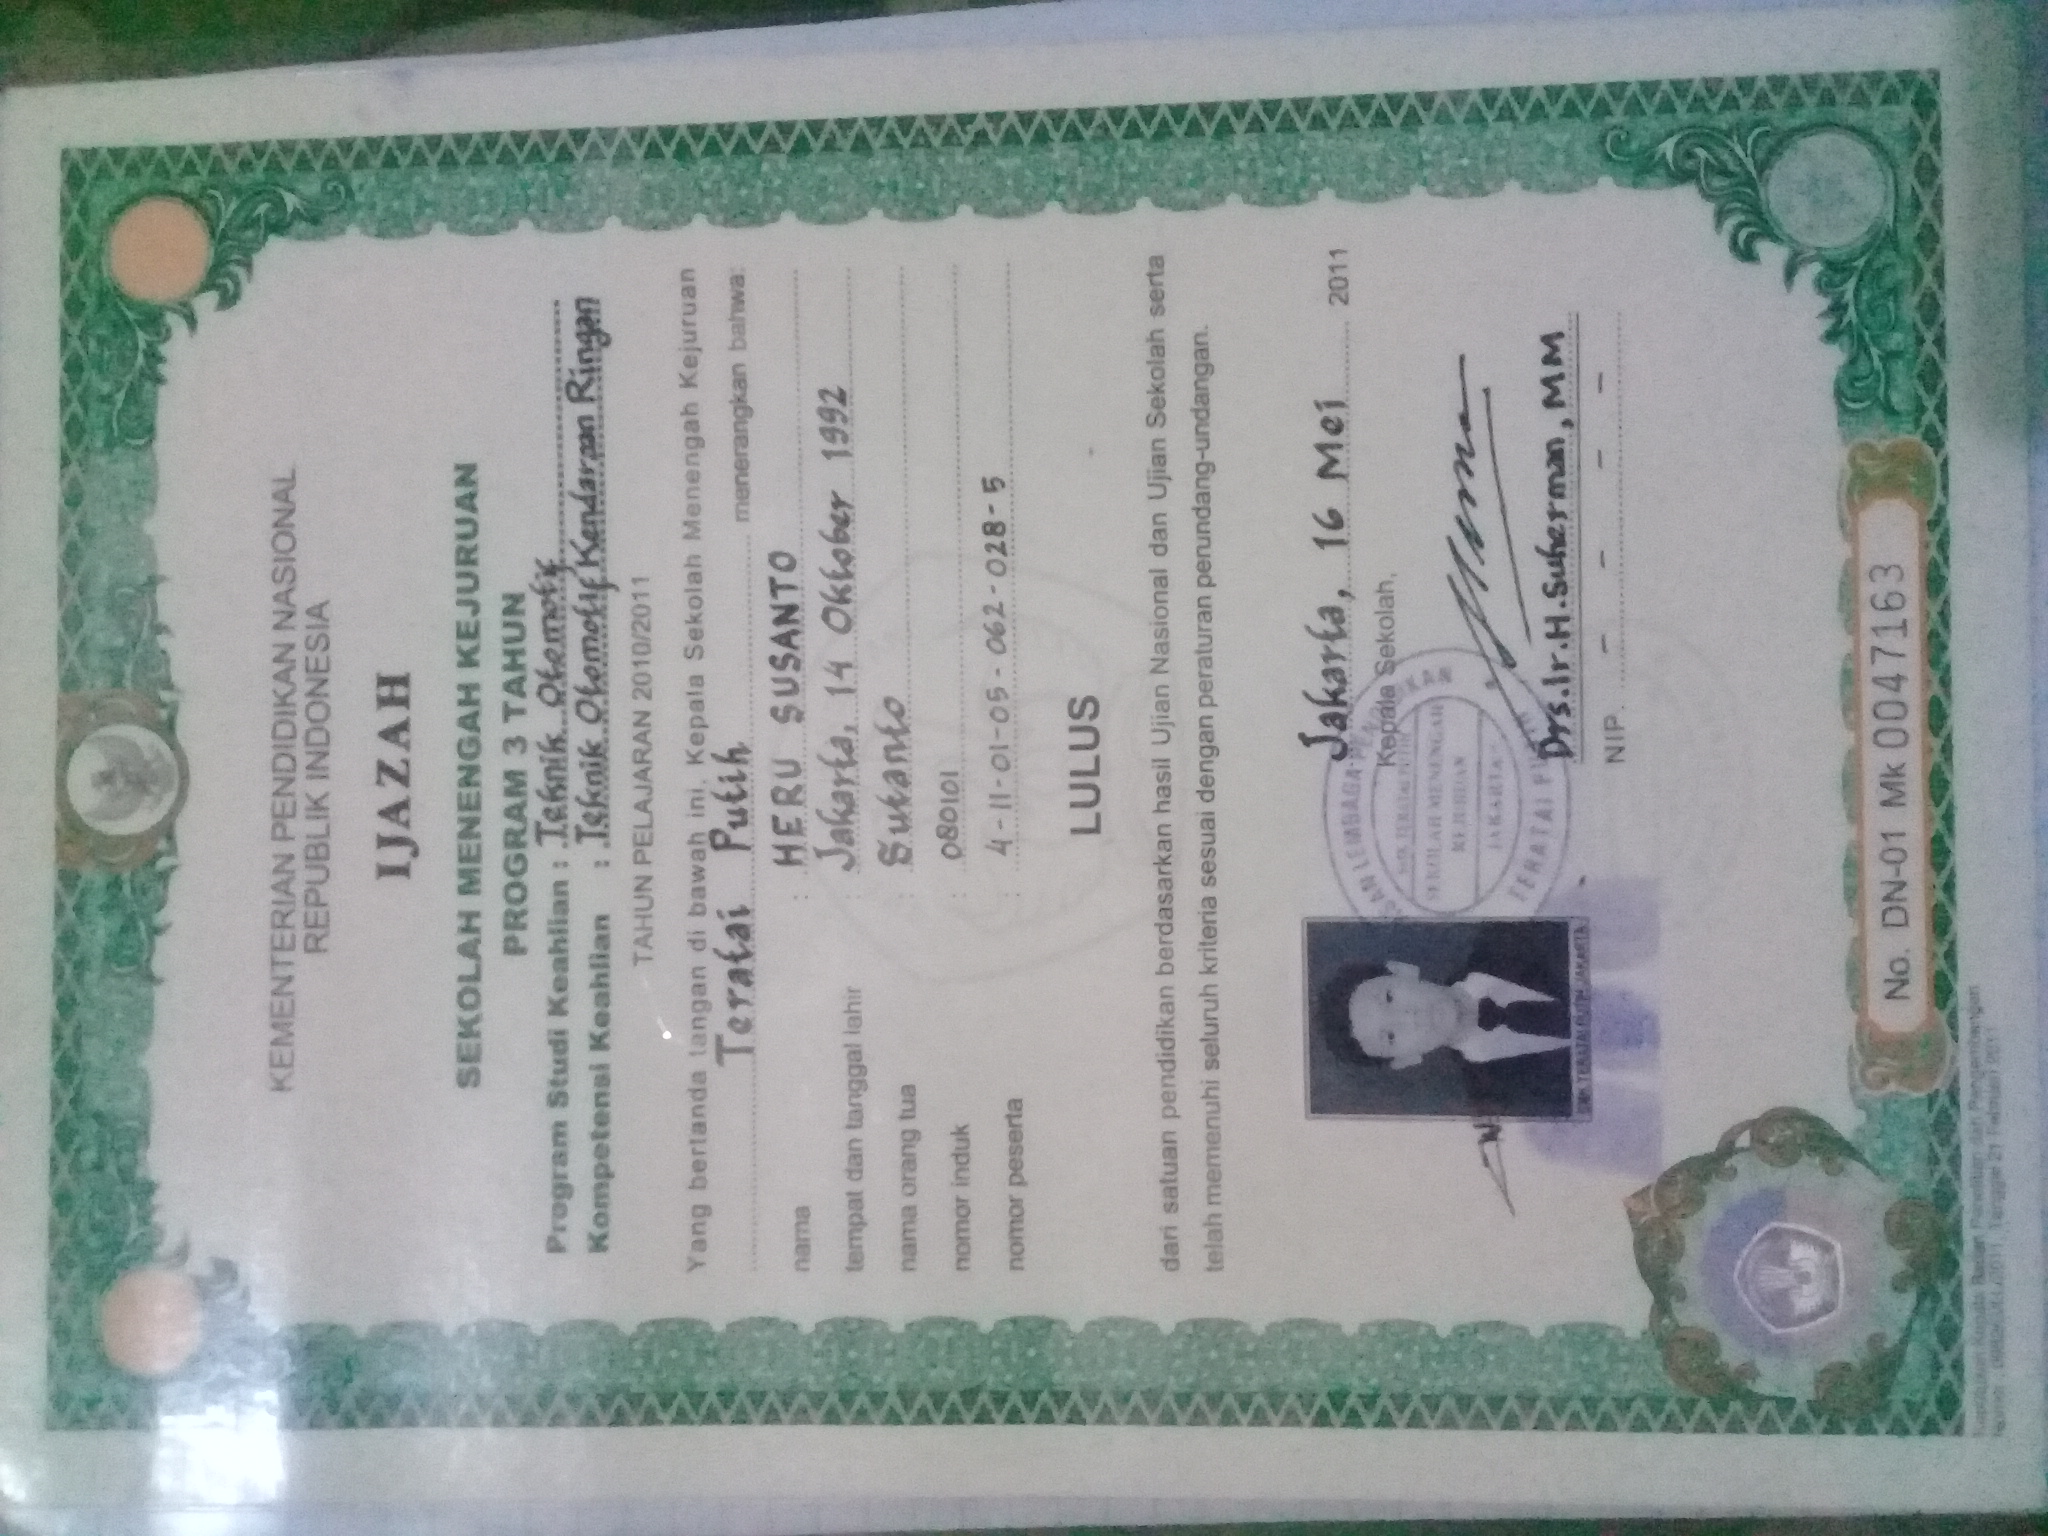 KEMENTERIAN PENDIDIKAN NASIONAL
REPUBLIK INDONESIA
IJAZAH
SEKOLAH MENENGAH KEJURUAN
PROGRAM 3 TAHUN
Program Studi Keahlian : Teknik Otomotif
Kompetensi Keahlian : Teknik Otomotif Kendaraan Ringan
TAHUN PELAJARAN 2010/2011
Yang bertanda tangan di bawah ini, Kepala Sekolah Menengah Kejuruan
Teratai Putih menerangkan bahwa:
nama : HERU SUSANTO
tempat dan tanggal lahir : Jakarta, 14 Oktober 1992
nama orang tua : Sutanto
nomor induk : 080101
nomor peserta : 4-11-01-05-062-028-5
LULUS
dari satuan pendidikan berdasarkan hasil Ujian Nasional dan Ujian Sekolah serta
telah memenuhi seluruh kriteria sesuai dengan peraturan perundang-undangan.
Jakarta, 16 Mei 2011
Kepala Sekolah,
LEMBAGA PENDIDIKAN
SMK TERATAI PUTIH
SEKOLAH MENENGAH
KEJURUAN
JAKARTA
TERATAI PUTIH
Drs.Ir.H.Suherman, MM
NIP. - - - -
SMK TERATAI PUTIH JAKARTA
No. DN-01 Mk 0047163
Keputusan Kepala Badan Penelitian dan Pengembangan
Nomor : Tanggal 21 Februari 2011